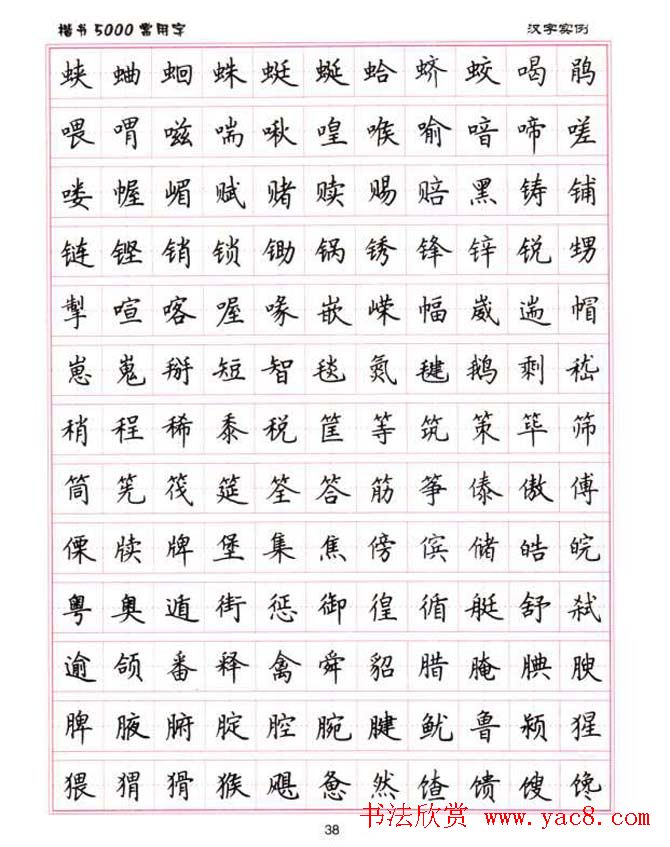 楷书5000常用字 汉字实例
蛱 蛐 蛔 蛛 蜓 蜒 蛤 蛴 蛟 喝 鹃
喂 喟 嗞 喘 啾 喤 喉 喻 喑 啼 嗟
喽 幄 嵋 赋 赌 赎 赐 赔 黑 铸 铺
链 铿 销 锁 锄 锅 锈 锋 锌 锐 甥
掣 喧 喀 喔 喙 嵌 嵘 幅 崴 遄 帽
崽 嵬 掰 短 智 毯 氮 毽 鹅 剩 嵇
稍 程 稀 黍 税 筐 等 筑 策 筚 筛
筒 筅 筏 筵 筌 答 筋 筝 傣 傲 傅
傈 牍 牌 堡 集 焦 傍 傧 储 皓 皖
粤 奥 遁 街 惩 御 徨 循 艇 舒 弑
逾 颌 番 释 禽 舜 貂 腊 腌 腆 腴
脾 腋 腑 腚 腔 腕 腱 鱿 鲁 颍 猩
猥 猬 猾 猴 飓 惫 然 馇 馈 馊 馋
38 书法欣赏 www.yac8.com